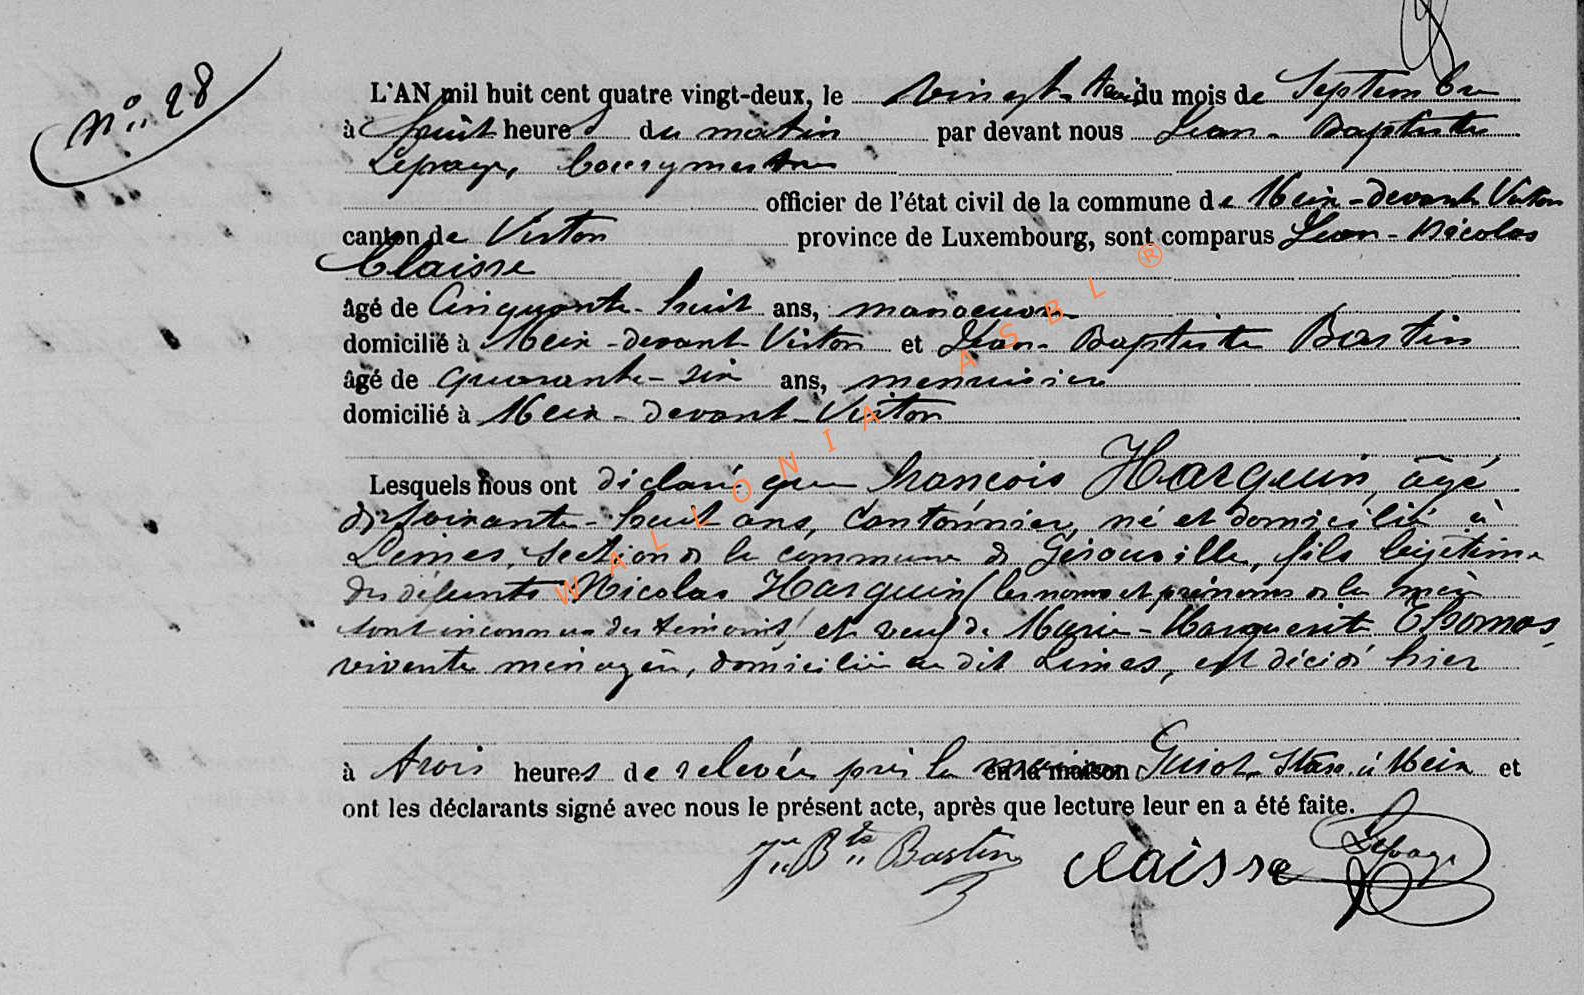 N° 28
L'AN mil huit cent quatre vingt-deux, le vingt-trois du mois de Septembre
à huit heures du matin par devant nous Jean-Baptiste
Lepage, bourgmestre
officier de l'état civil de la commune de Meix-devant-Virton
canton de Virton province de Luxembourg, sont comparus Jean-Nicolas
Claisse
âgé de cinquante-huit ans, manoeuvre
domicilié à Meix-devant-Virton et Jean-Baptiste Bastin
âgé de quarante-six ans, menuisier
domicilié à Meix-devant-Virton
Lesquels nous ont déclaré que François Harquin, âgé
de soixante-huit ans, cantonnier, né et domicilié à
Limes, section de la commune de Gérouville, fils légitime
des défunts Nicolas Harquin (les noms et prénoms de la mère
sont inconnus des témoins) et veuf de Marie-Marguerite Thomas,
vivante ménagère, domiciliée au dit Limes, est décédé hier
à trois heures de relevée près la en la maison à Meix et
ont les déclarants signé avec nous le présent acte, après que lecture leur en a été faite.
Jn Bte Bastin Claisse Lepage
WALLONIA ASBL ®